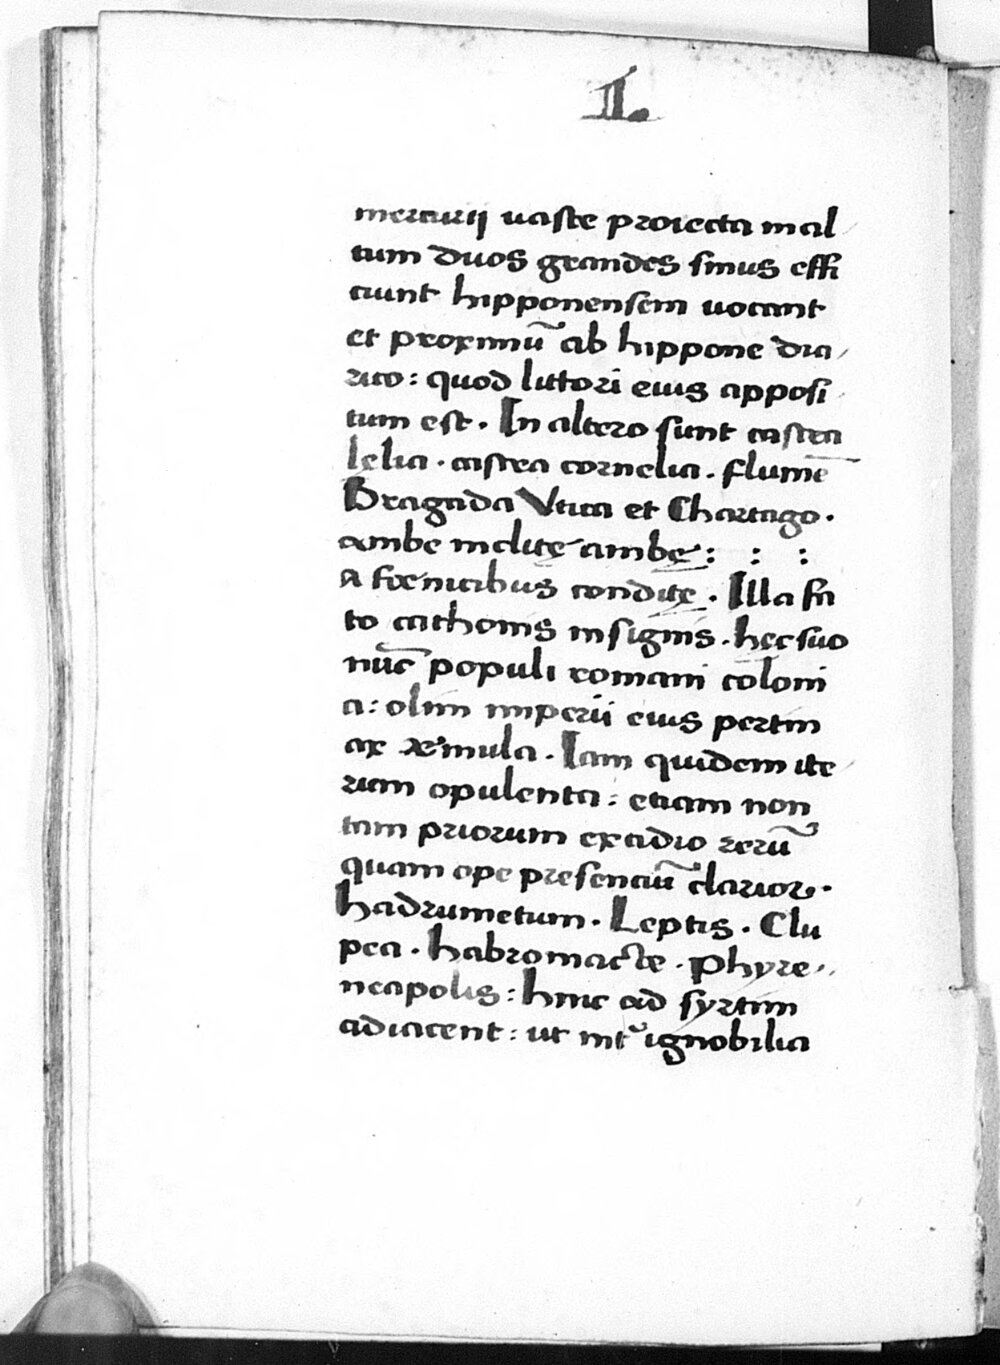 II.
mercurij uaste proiecta in al
tum duos grandes sinus effi
ciunt hipponensem uocant
et proximū ab hippone dia
rito: quod littori eius apposi
tum est. In altero sunt castra
lelia. castra cornelia. flumē
Bragada Vtica et Chartago.
ambe inclite ambę: : :
A foenicibus condite. Illa fa
to cathonis insignis. hęc suo
nūc populi romani coloni
a: olim imperii eius pertin
ax aemula. Iam quidem ite
rum opulenta: etiam non
tam priorum excidio rerū
quam ope presenciū clarior.
hadrumetum. Leptis. Clu
pea. habromacte. Phyre
neapolis: hinc ad syrtim
adiacent: ut int͛ ignobilia